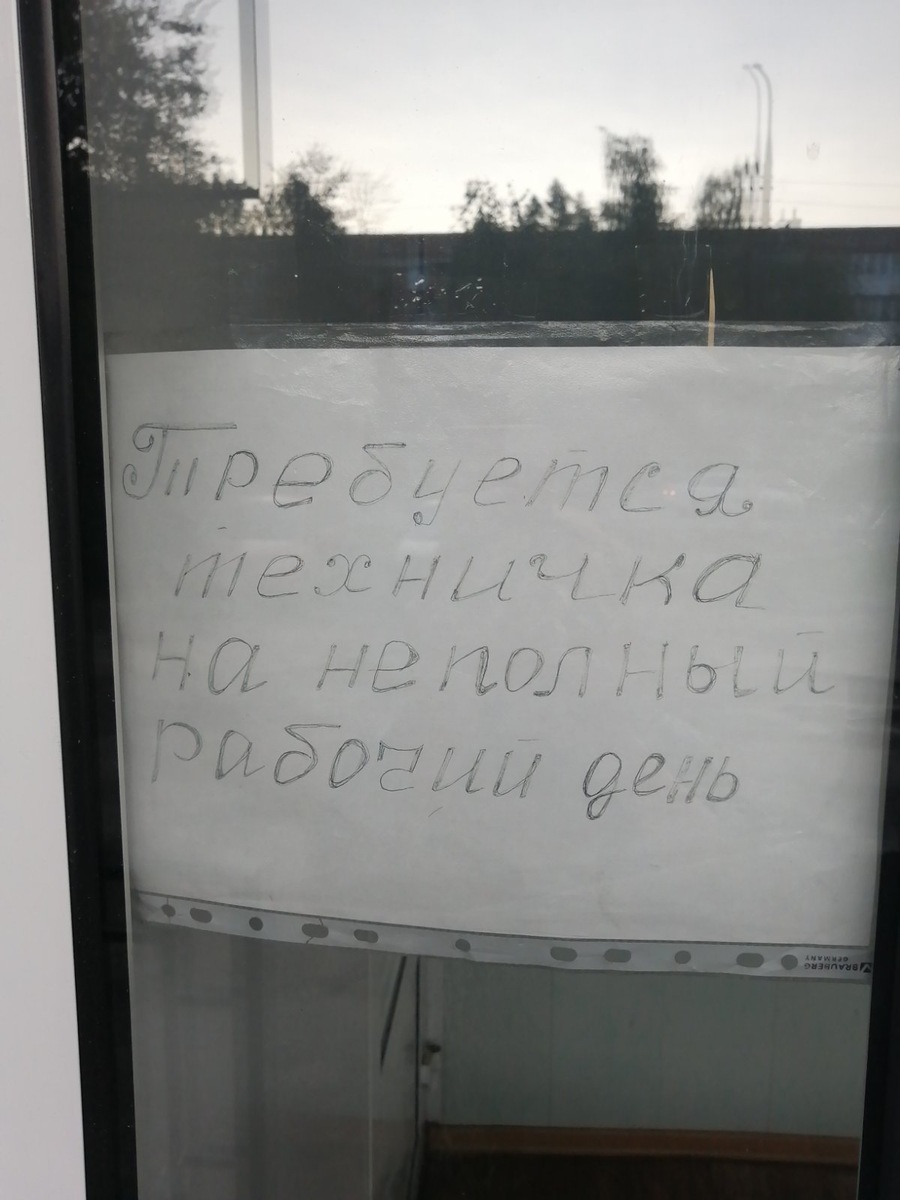 Требуется
техничка
на неполный
рабочий день
BRAUBERG
GERMANY